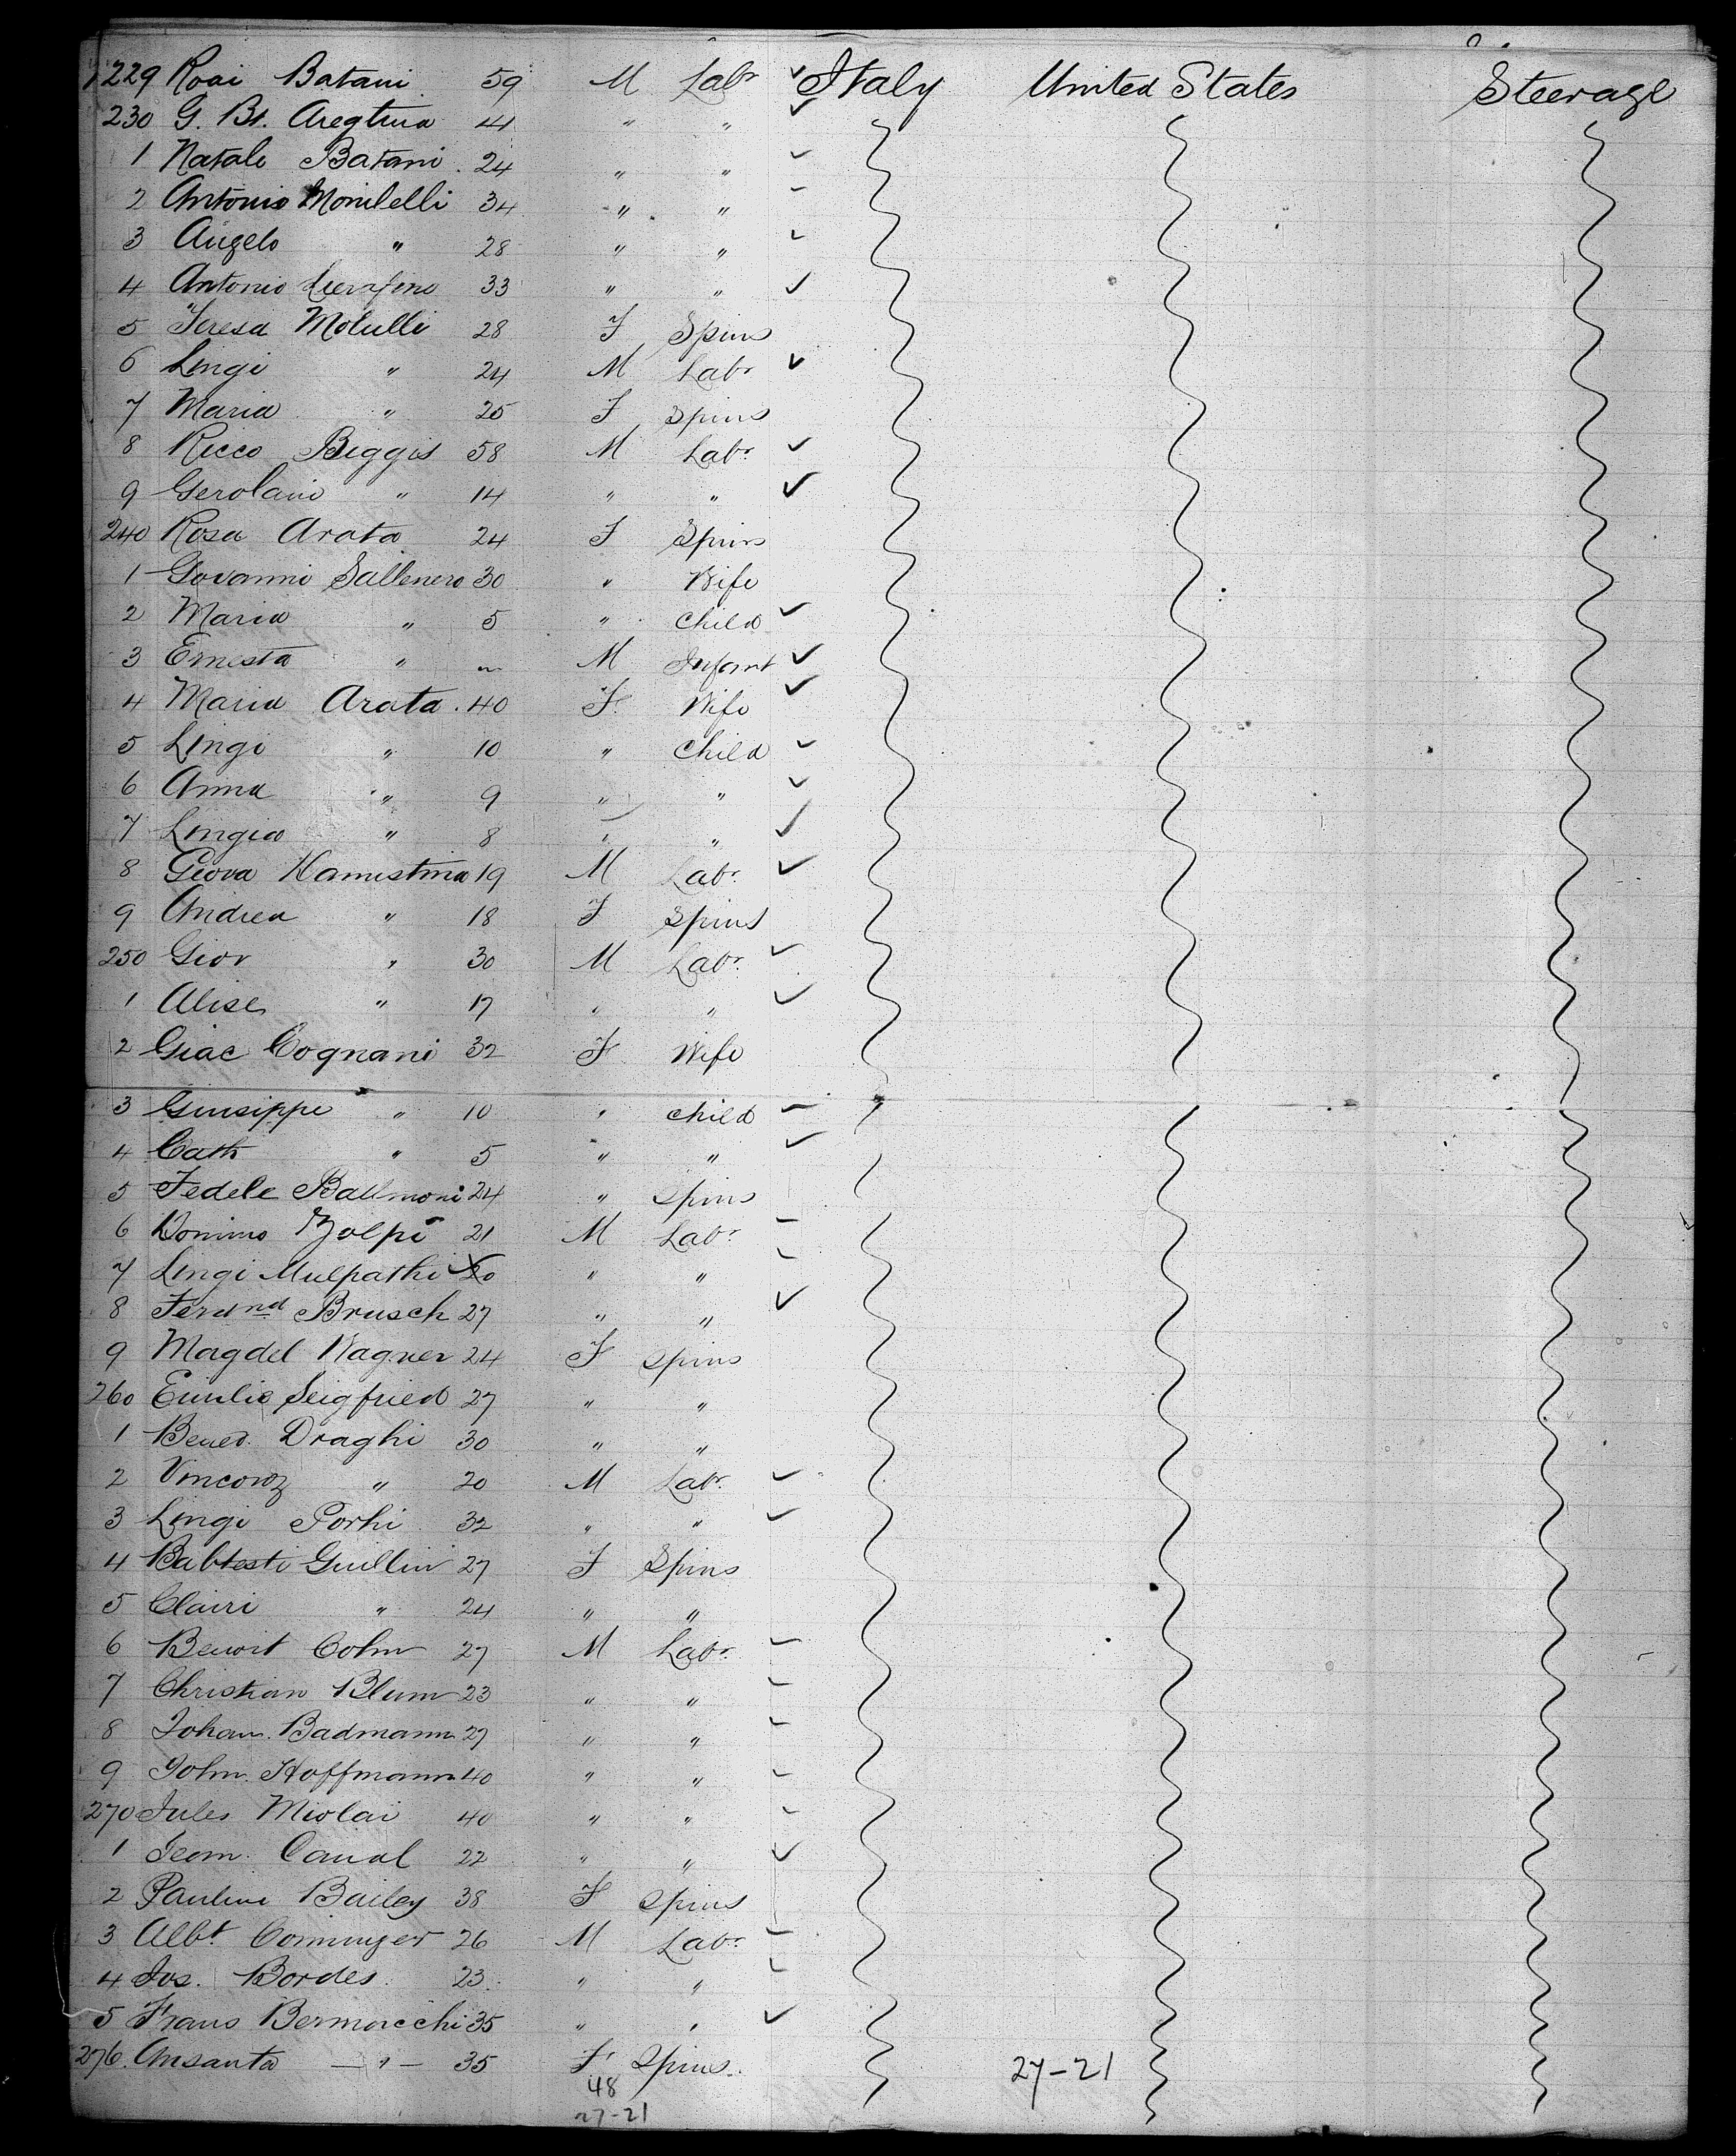 229 Rosi Batani 59 M Labr Italy United States Steerage
230 G. Bt. 44 " "
1 Natale Batani 24 " "
2 Antonio Monilelli 34 " "
3 Angelo " 28 " "
4 Antonio 33 " "
5 Teresa Molulli 28 F Spins
6 Lingi " 24 M Labr
7 Maria " 25 F Spins
8 Ricco Biggis 58 M Labr
9 Gerolani " 14 " "
240 Rosa Arata 24 F Spins
1 Govanni Sallenero 30 " Wife
2 Maria " 5 " Child
3 Ernesta " M Infant
4 Maria Arata 40 F Wife
5 Lingi " 10 " Child
6 Anna " 9 " "
7 Lingia " 8 " "
8 Giova 19 M Labr
9 Andrea " 18 F Spins
250 Giov " 30 M Labr
1 Alise " 17 " "
2 Giac Cognani 32 F Wife
3 Giusippe " 10 " Child
4 Cath " 5 " "
5 Fedele 24 " Spins
6 Domino Zolpi 21 M Labr
7 Lingi Mulpathi 20 " "
8 Ferdnd Brusch 27 " "
9 Magdel Wagner 24 F Spins
260 Emilie Seigfried 27 " "
1 Bened. Draghi 30 " "
2 Vinconz " 20 M Labr
3 Lingi Porhi 32 " "
4 Babtesti Guillin 27 F Spins
5 Clairi " 24 " "
6 Benoit Cohn 27 M Labr
7 Christian Blum 23 " "
8 Johan. Badmann 27 " "
9 John. Hoffmann 40 " "
270 Jules Miolai 40 " "
1 Jeom. Canal 22 " "
2 Pauline Bailey 38 F Spins
3 Albt. Cominger 26 M Labr
4 Jos. Bordes 23 " "
5 Frans Bermocchi 35 " "
276. Ansanta — " — 35 F Spins. 27-21
48
27-21